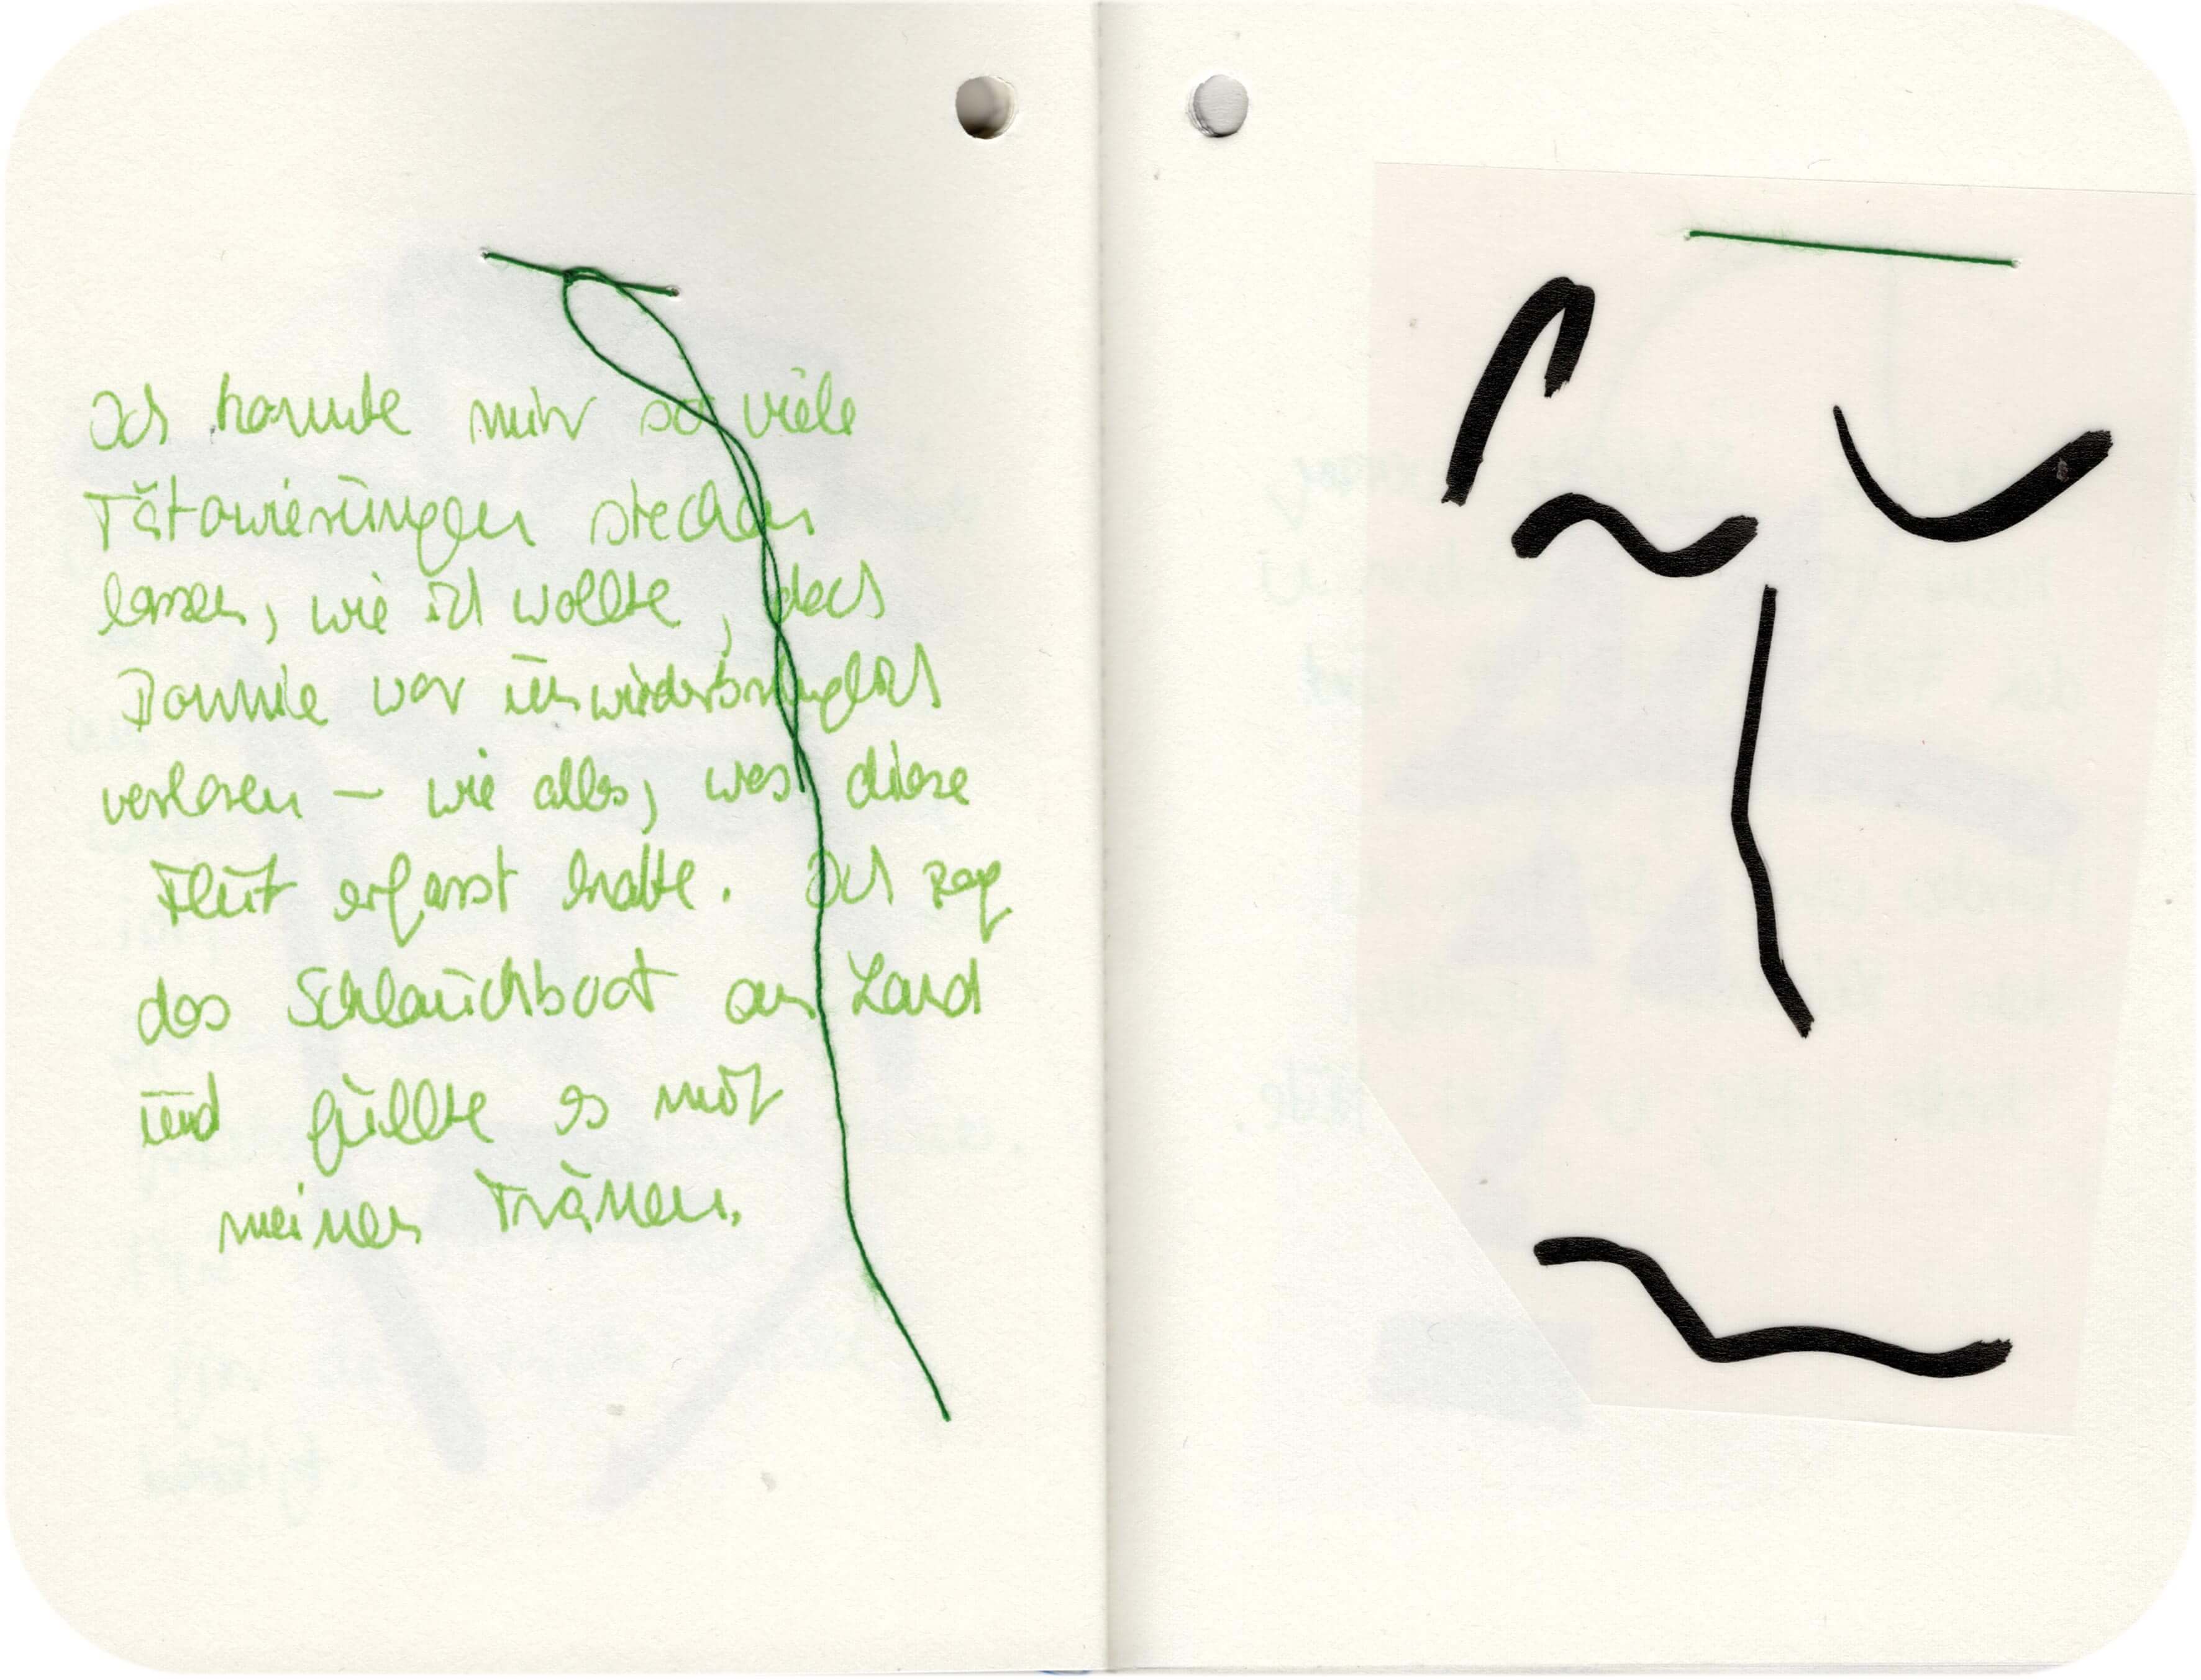 Ich konnte mir so viele
Tätowierungen stechen
lassen, wie ich wollte, doch
Bonnie war unwiederbringlich
verloren – wie alles, was diese
Flut erfasst hatte. Ich zog
das Schlauchboot an Land
und füllte es mit
meinen Tränen.